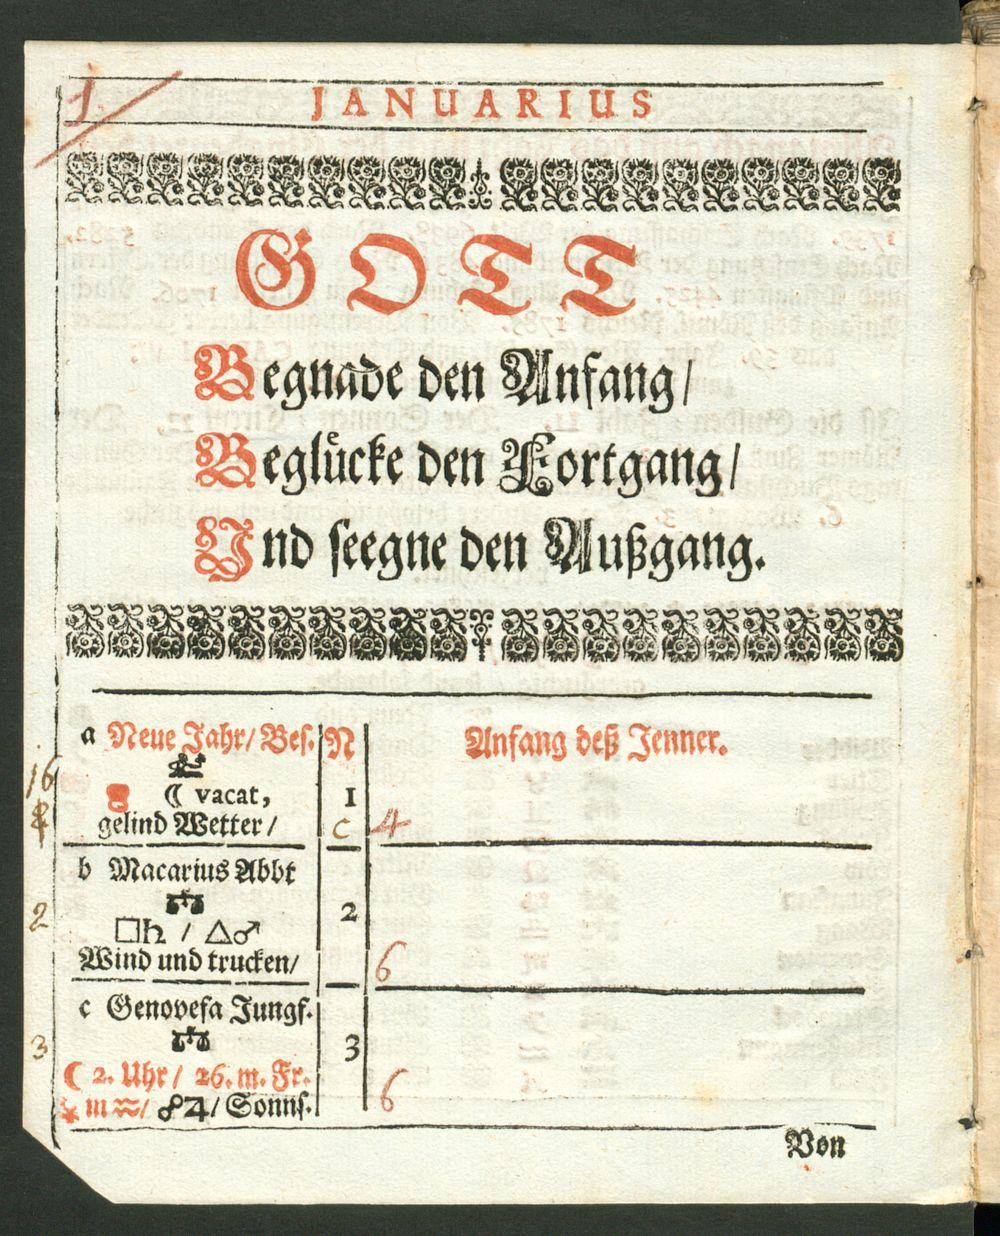 1
JANUARIUS
GOTT
Begnade den Anfang/
Beglücke den Fortgang/
Und seegne den Außgang.
a Neue Jahr/ Bes. N Anfang deß Jenner.
☾ vacat, 1
gelind Wetter/ C 4
b Macarius Abbt
2 2
□♄ / △♂
Wind und trucken/ 6
c Genovefa Jungf.
3 3
☾ 2. Uhr/ 26. m. Fr.
m ♒/ ☍♃/ Sonns. 6
Von